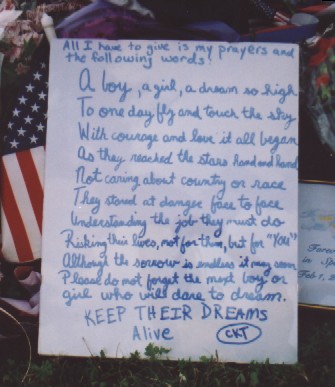 All I have to give is my prayers and
the following words!
A boy, a girl, a dream so high
To one day fly and touch the sky
With courage and love it all began
As they reached the stars hand and hand
Not caring about country or race
They stood at danger face to face
Understanding the job they must do
Risking their lives, not for them, but for "You"
Although the sorrow is endless it may seem
Please do not forget the next boy or
girl who will dare to dream.
KEEP THEIR DREAMS
Alive
CKT
in Sp
Feb 1, 2